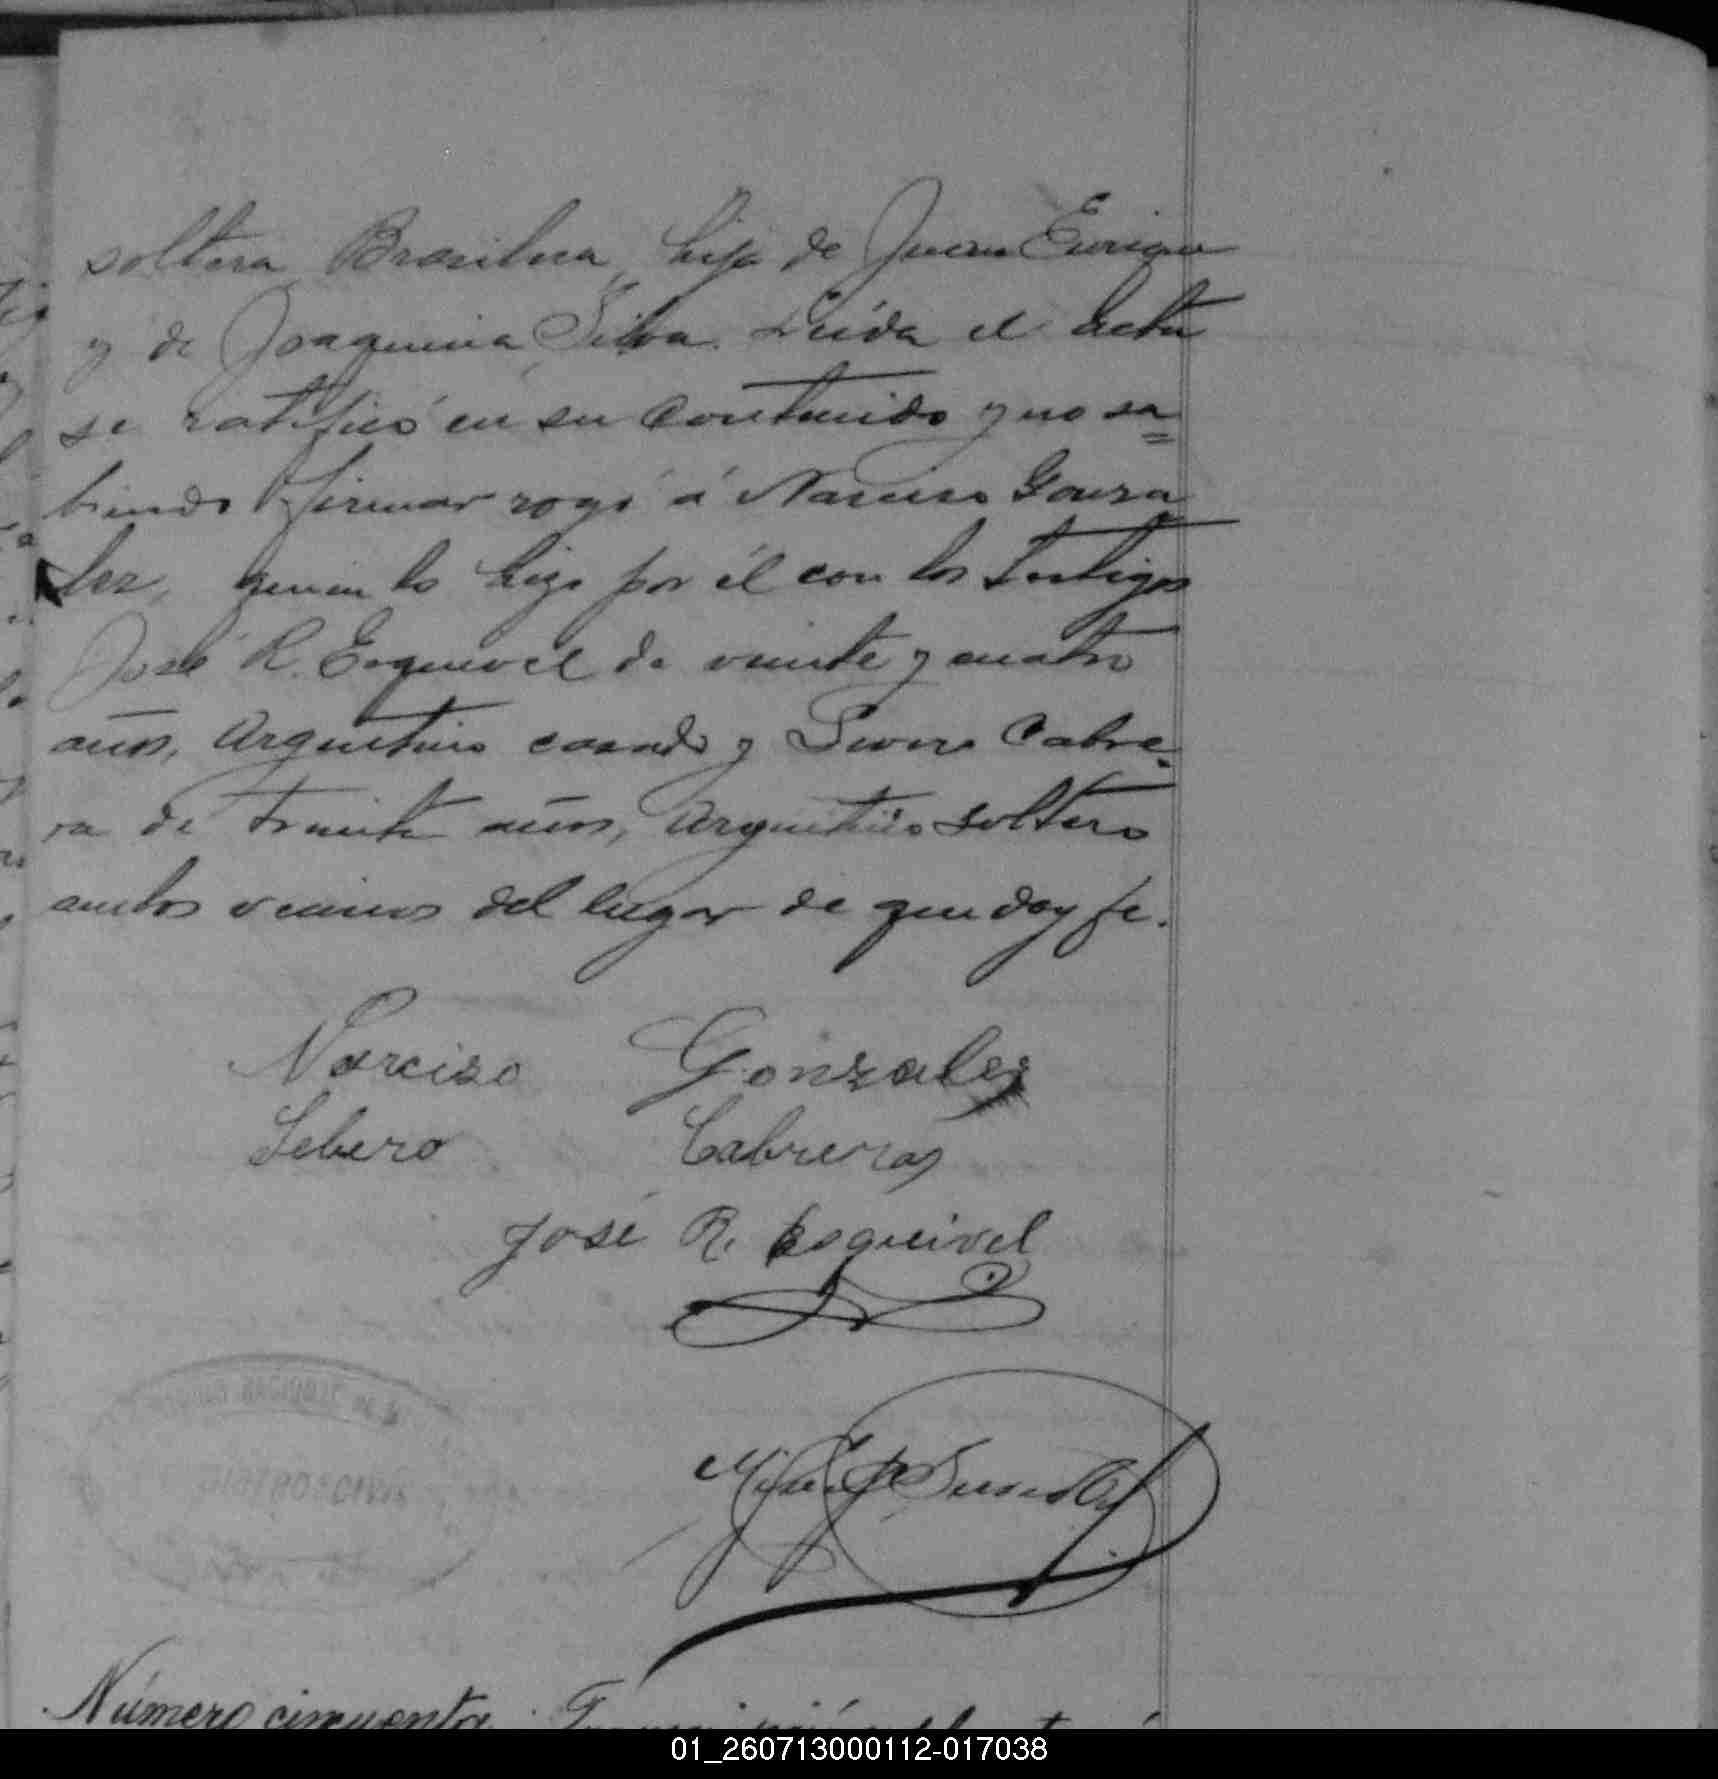 soltera, Brasilera, hija de Juan Enrique
y de Joaquina Silva. Leída el acta
se ratificó en su contenido y no sa=
biendo firmar rogó á Narciso Gonza
lez, quien lo hizo por él con los testigos
José R. Esquivel de veinte y cuatro
años, Argentino casado y Severo Cabre-
ra de treinta años, Argentino soltero
ambos vecinos del lugar de que doy fe.
Narciso Gonzalez
Sebero Cabrera
José R. Esquivel
Número cincuenta.
01_260713000112-017038